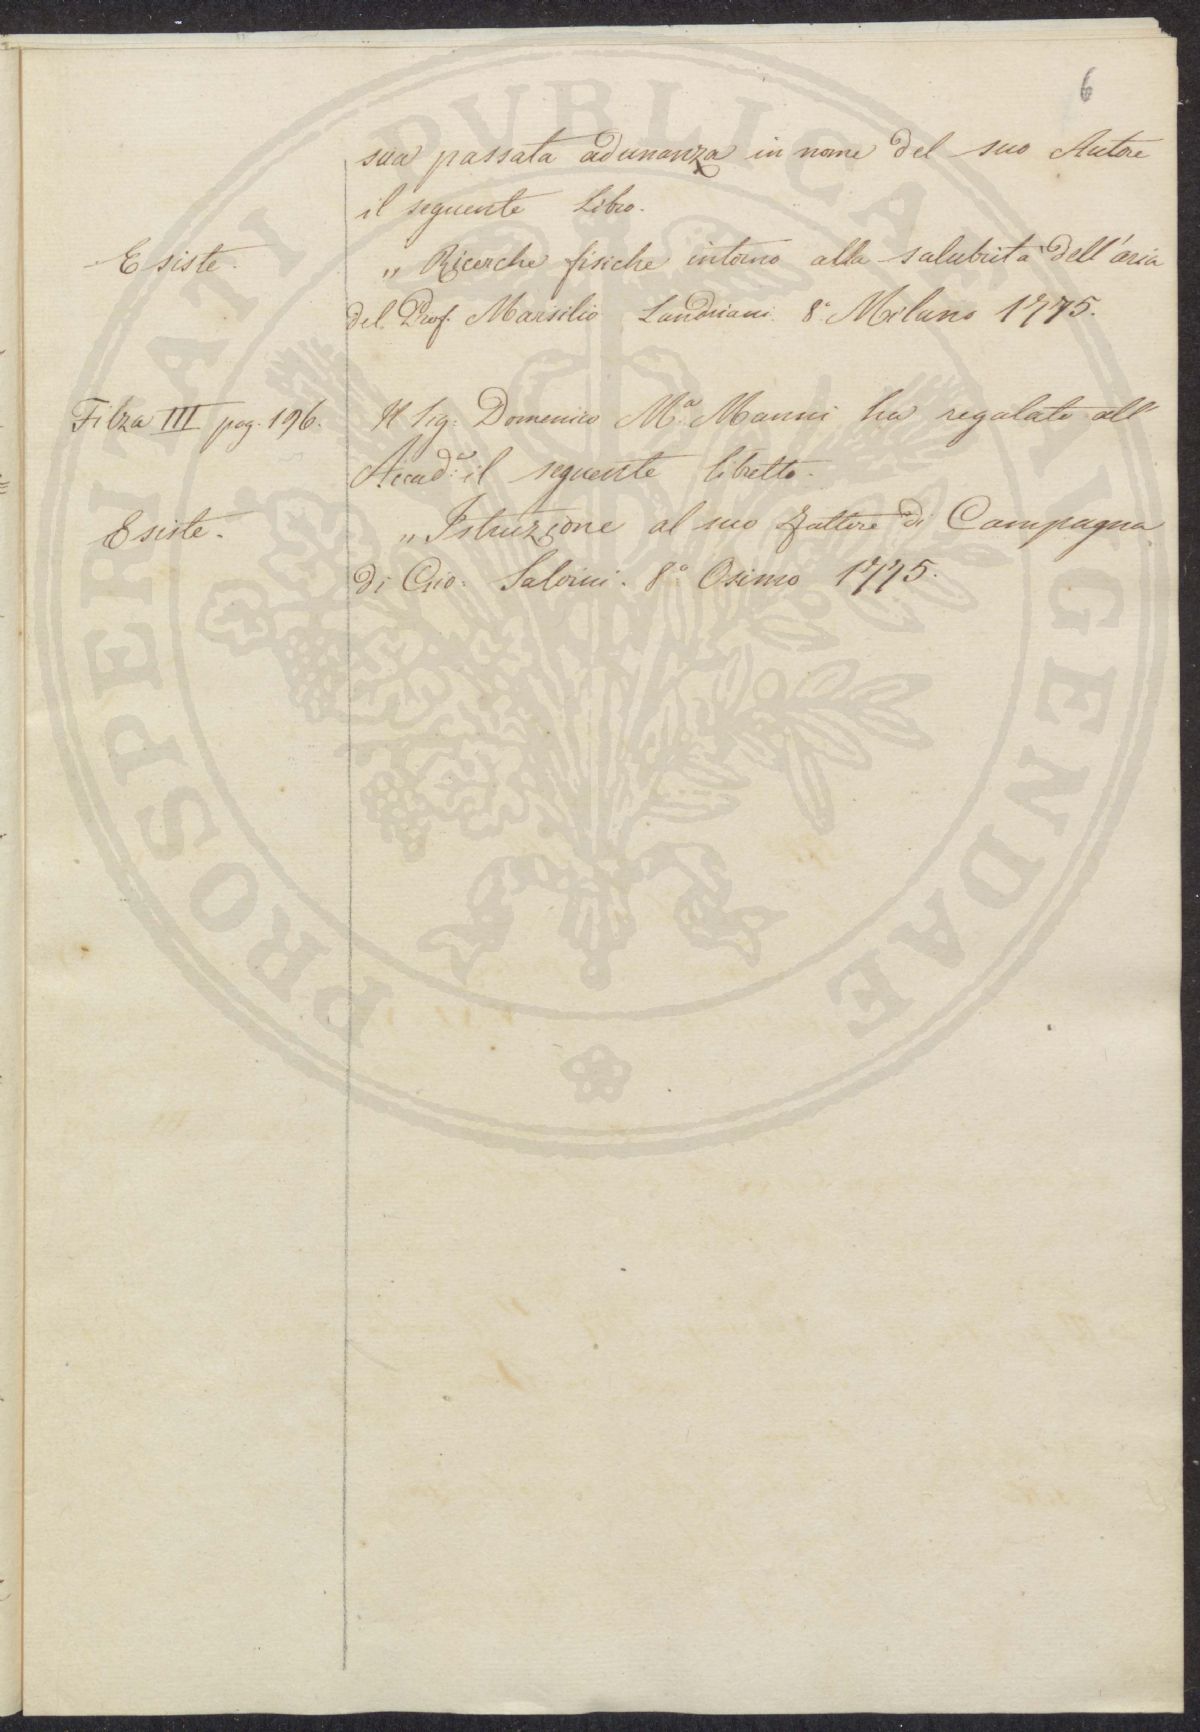 6
sua passata adunanza in nome del suo Autore
il seguente Libro.
Esiste.
„ Ricerche fisiche intorno alla salubrità dell'aria
del Prof. Marsilio Landriani 8.° Milano 1775.
Filza III pag. 196.
Il Sig: Domenico M.ª Manni ha regalato all'
Accad:ª il seguente libretto.
Esiste.
„ Istruzione al suo Fattore di Campagna
di Gio: Salvini. 8.° Osimo 1775.
PROSPERITATI PVBLICAE AVGENDAE